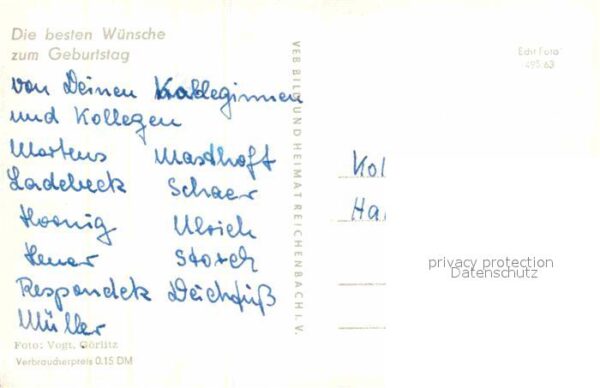 Die besten Wünsche
zum Geburtstag
von Deinen Kolleginnen
und Kollegen
Martens Masthoft
Ladebeck Schaer
Hoenig Ulrich
Storch
Respondek Deichfuß
Müller
Foto: Vogt, Görlitz
Verbraucherpreis 0.15 DM
VEB BILD UND HEIMAT REICHENBACH I. V.
Echt Foto
495/63
Kol
Ha
privacy protection
Datenschutz